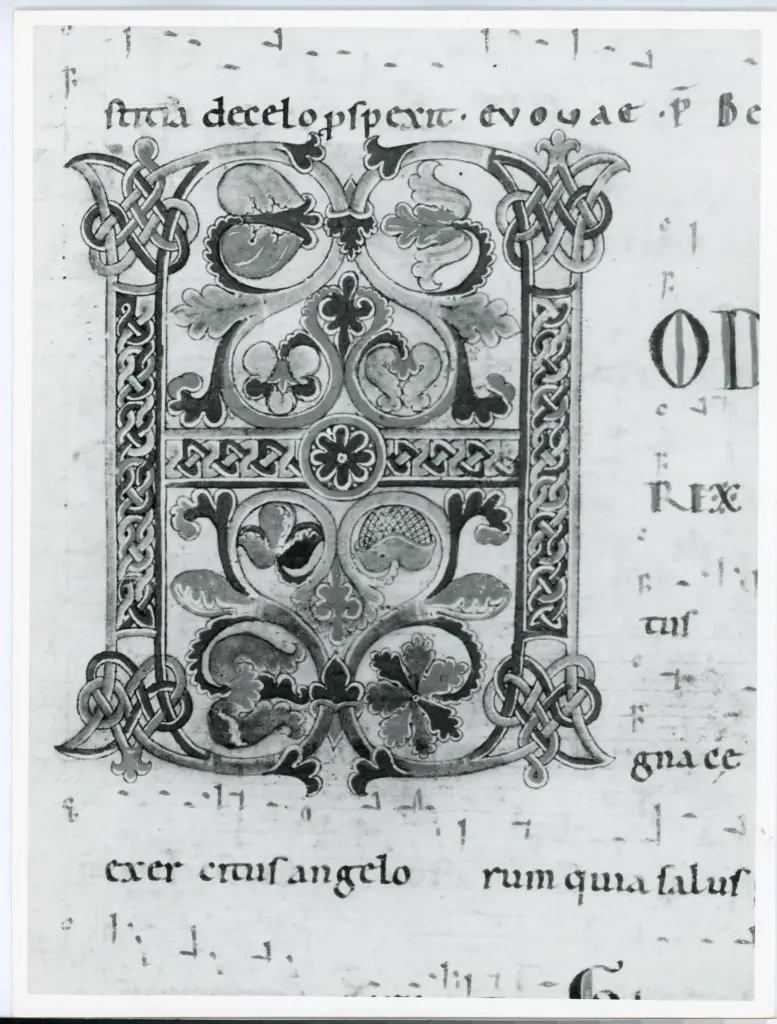 stitia de celo pspexit · evovae · P̄ Be
H OD
REX
tus
gna ce
exer citus angelo rum quia salus
G